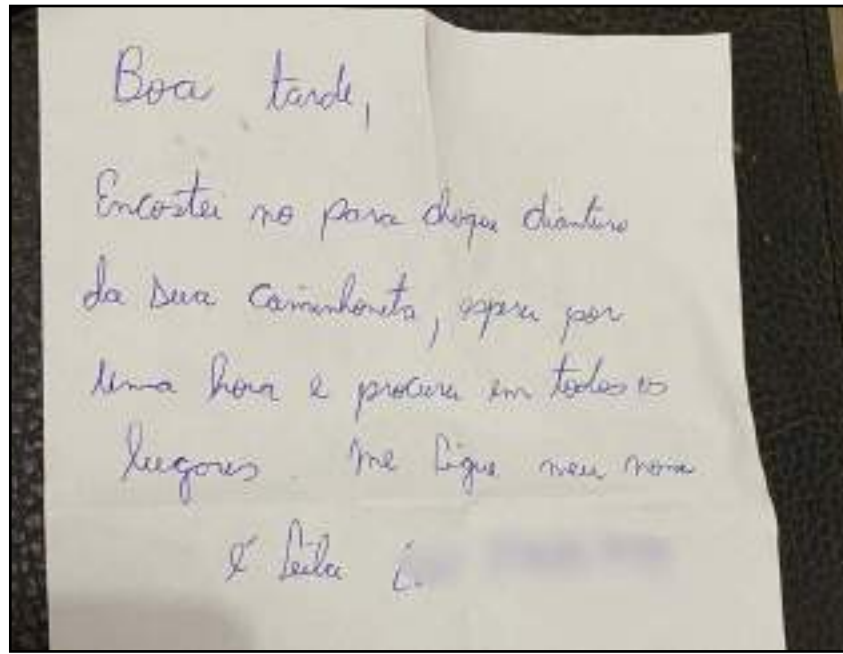 Boa tarde,
Encostei no para choque dianteiro
da sua caminhoneta, esperei por
uma hora e procurei em todos os
lugares. Me ligue meu nome
é Leila